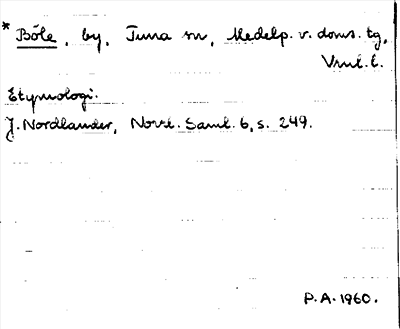 * Böle, by, Tuna sn, Medelp. v. doms. tg,
Vnrl. l.
Etymologi.
J. Nordlander, Norrl. Saml. 6, s. 249.
P.A. 1960.